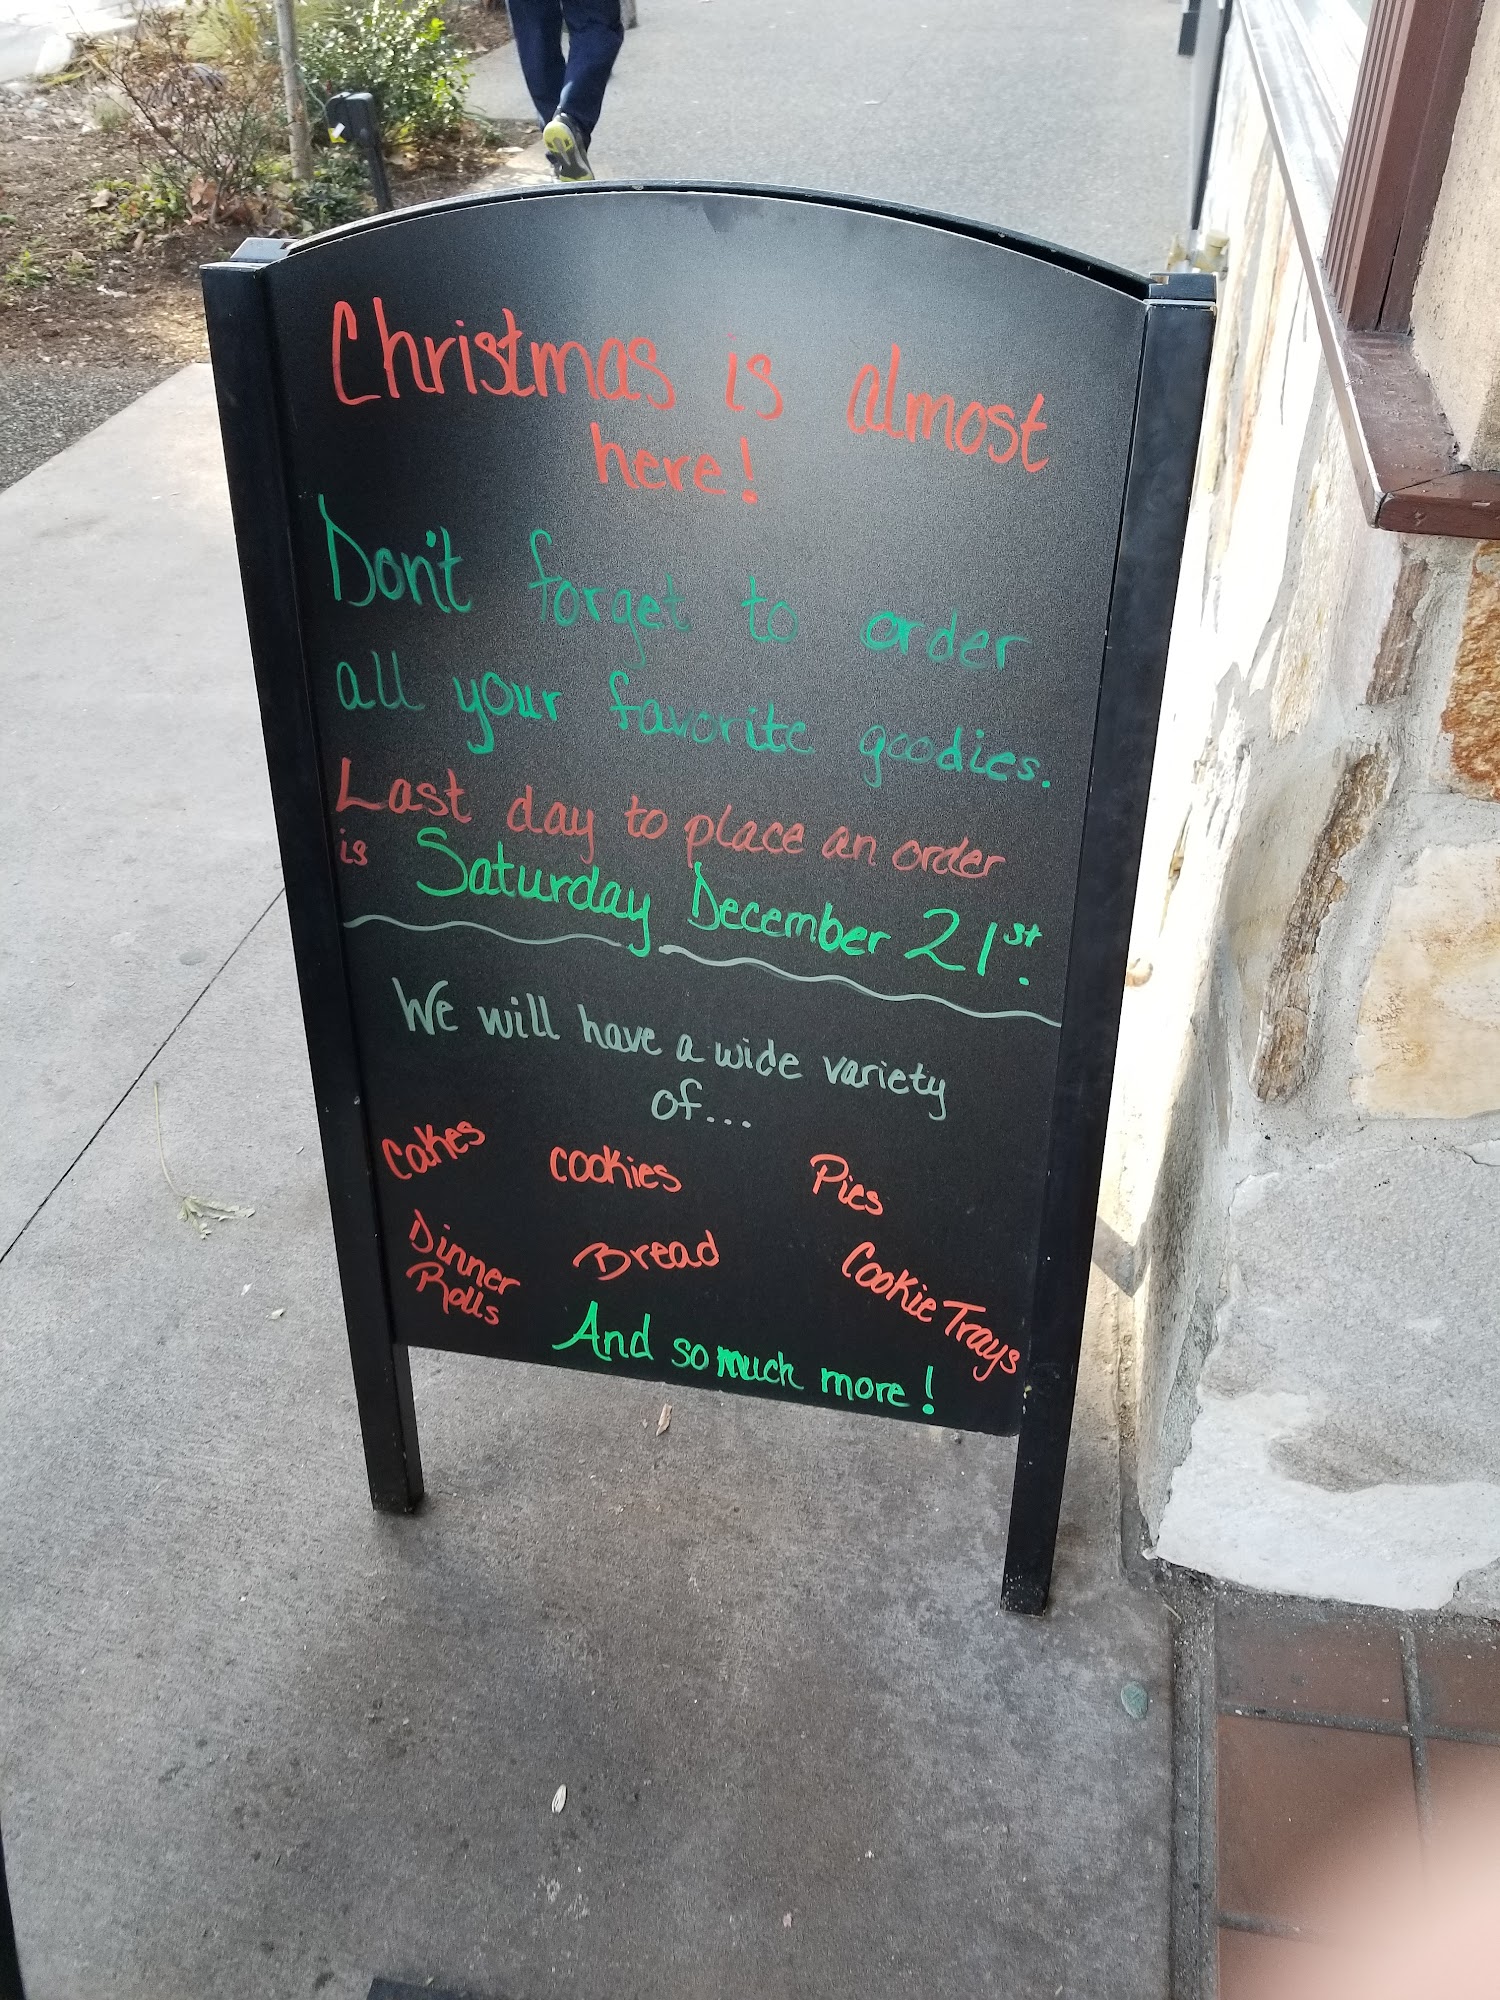 Christmas is almost
here!
Don't forget to order
all your favorite goodies.
Last day to place an order
is Saturday December 21st.
We will have a wide variety
of...
Cakes cookies Pies
Dinner
Rolls
Bread
Cookie Trays
And so much more!